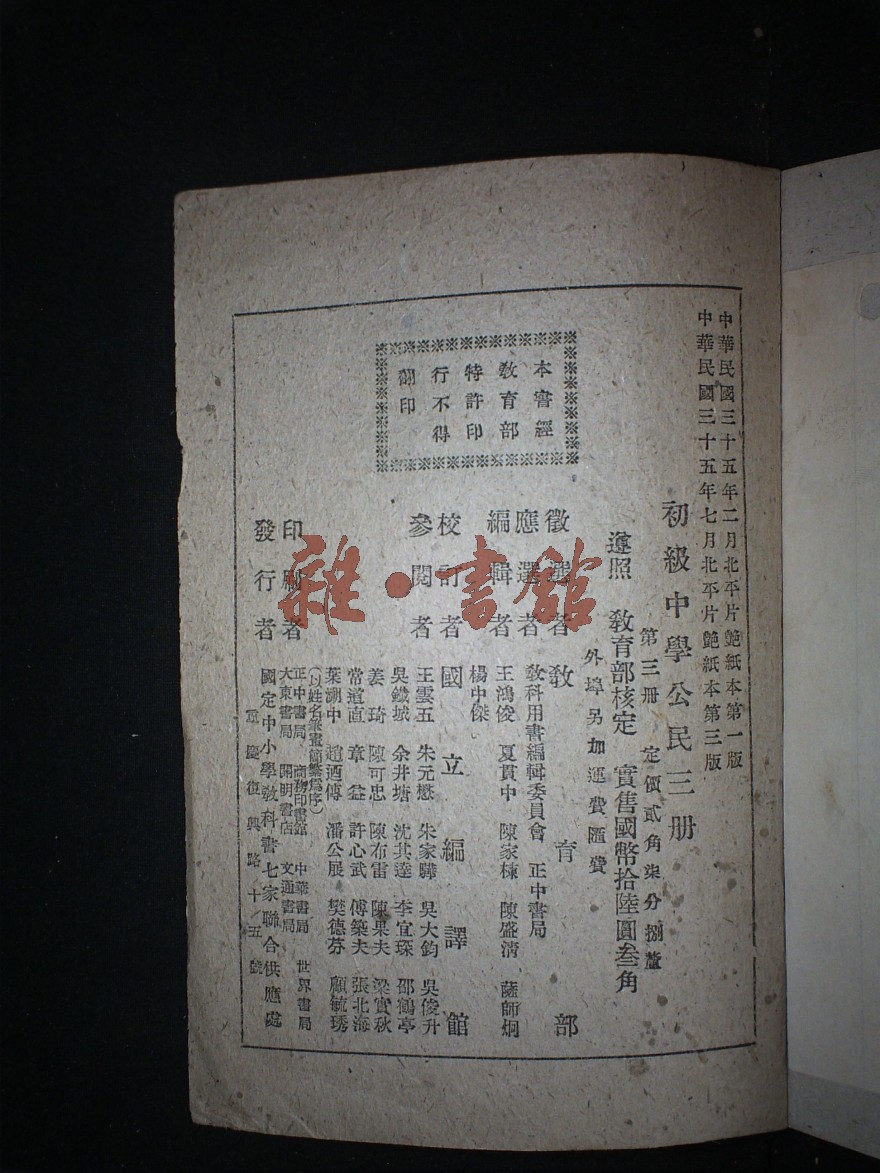 中華民國三十五年二月北平片艶紙本第一版
中華民國三十五年七月北平片艶紙本第三版
初級中學公民三册
第三册 定價貳角柒分捌釐
遵照 教育部核定 實售國幣拾陸圓叁角
外埠另加運費匯費
本書經
教育部
特許印
行不得
翻印
徵選者 教育部
應選者 教科用書編輯委員會 正中書局
編輯者 王鴻俊 夏貫中 陳家棟 陳盛清 薩師炯
楊中傑
校訂者 國立編譯館
參閱者 王雲五 朱元懋 朱家驊 吳大鈞 吳俊升
吳鐵城 余井塘 沈其達 李宜琛 邵鶴亭
姜琦 陳可忠 陳布雷 陳果夫 梁實秋
常道直 章益 許心武 傅築夫 張北海
葉溯中 趙迺傳 潘公展 樊德芬 顧毓琇
(以姓名筆畫簡繁爲序)
印刷者 正中書局 商務印書館 中華書局 世界書局
大東書局 開明書店 文通書局
發行者 國定中小學教科書七家聯合供應處
重慶復興路十五號
雜·書館